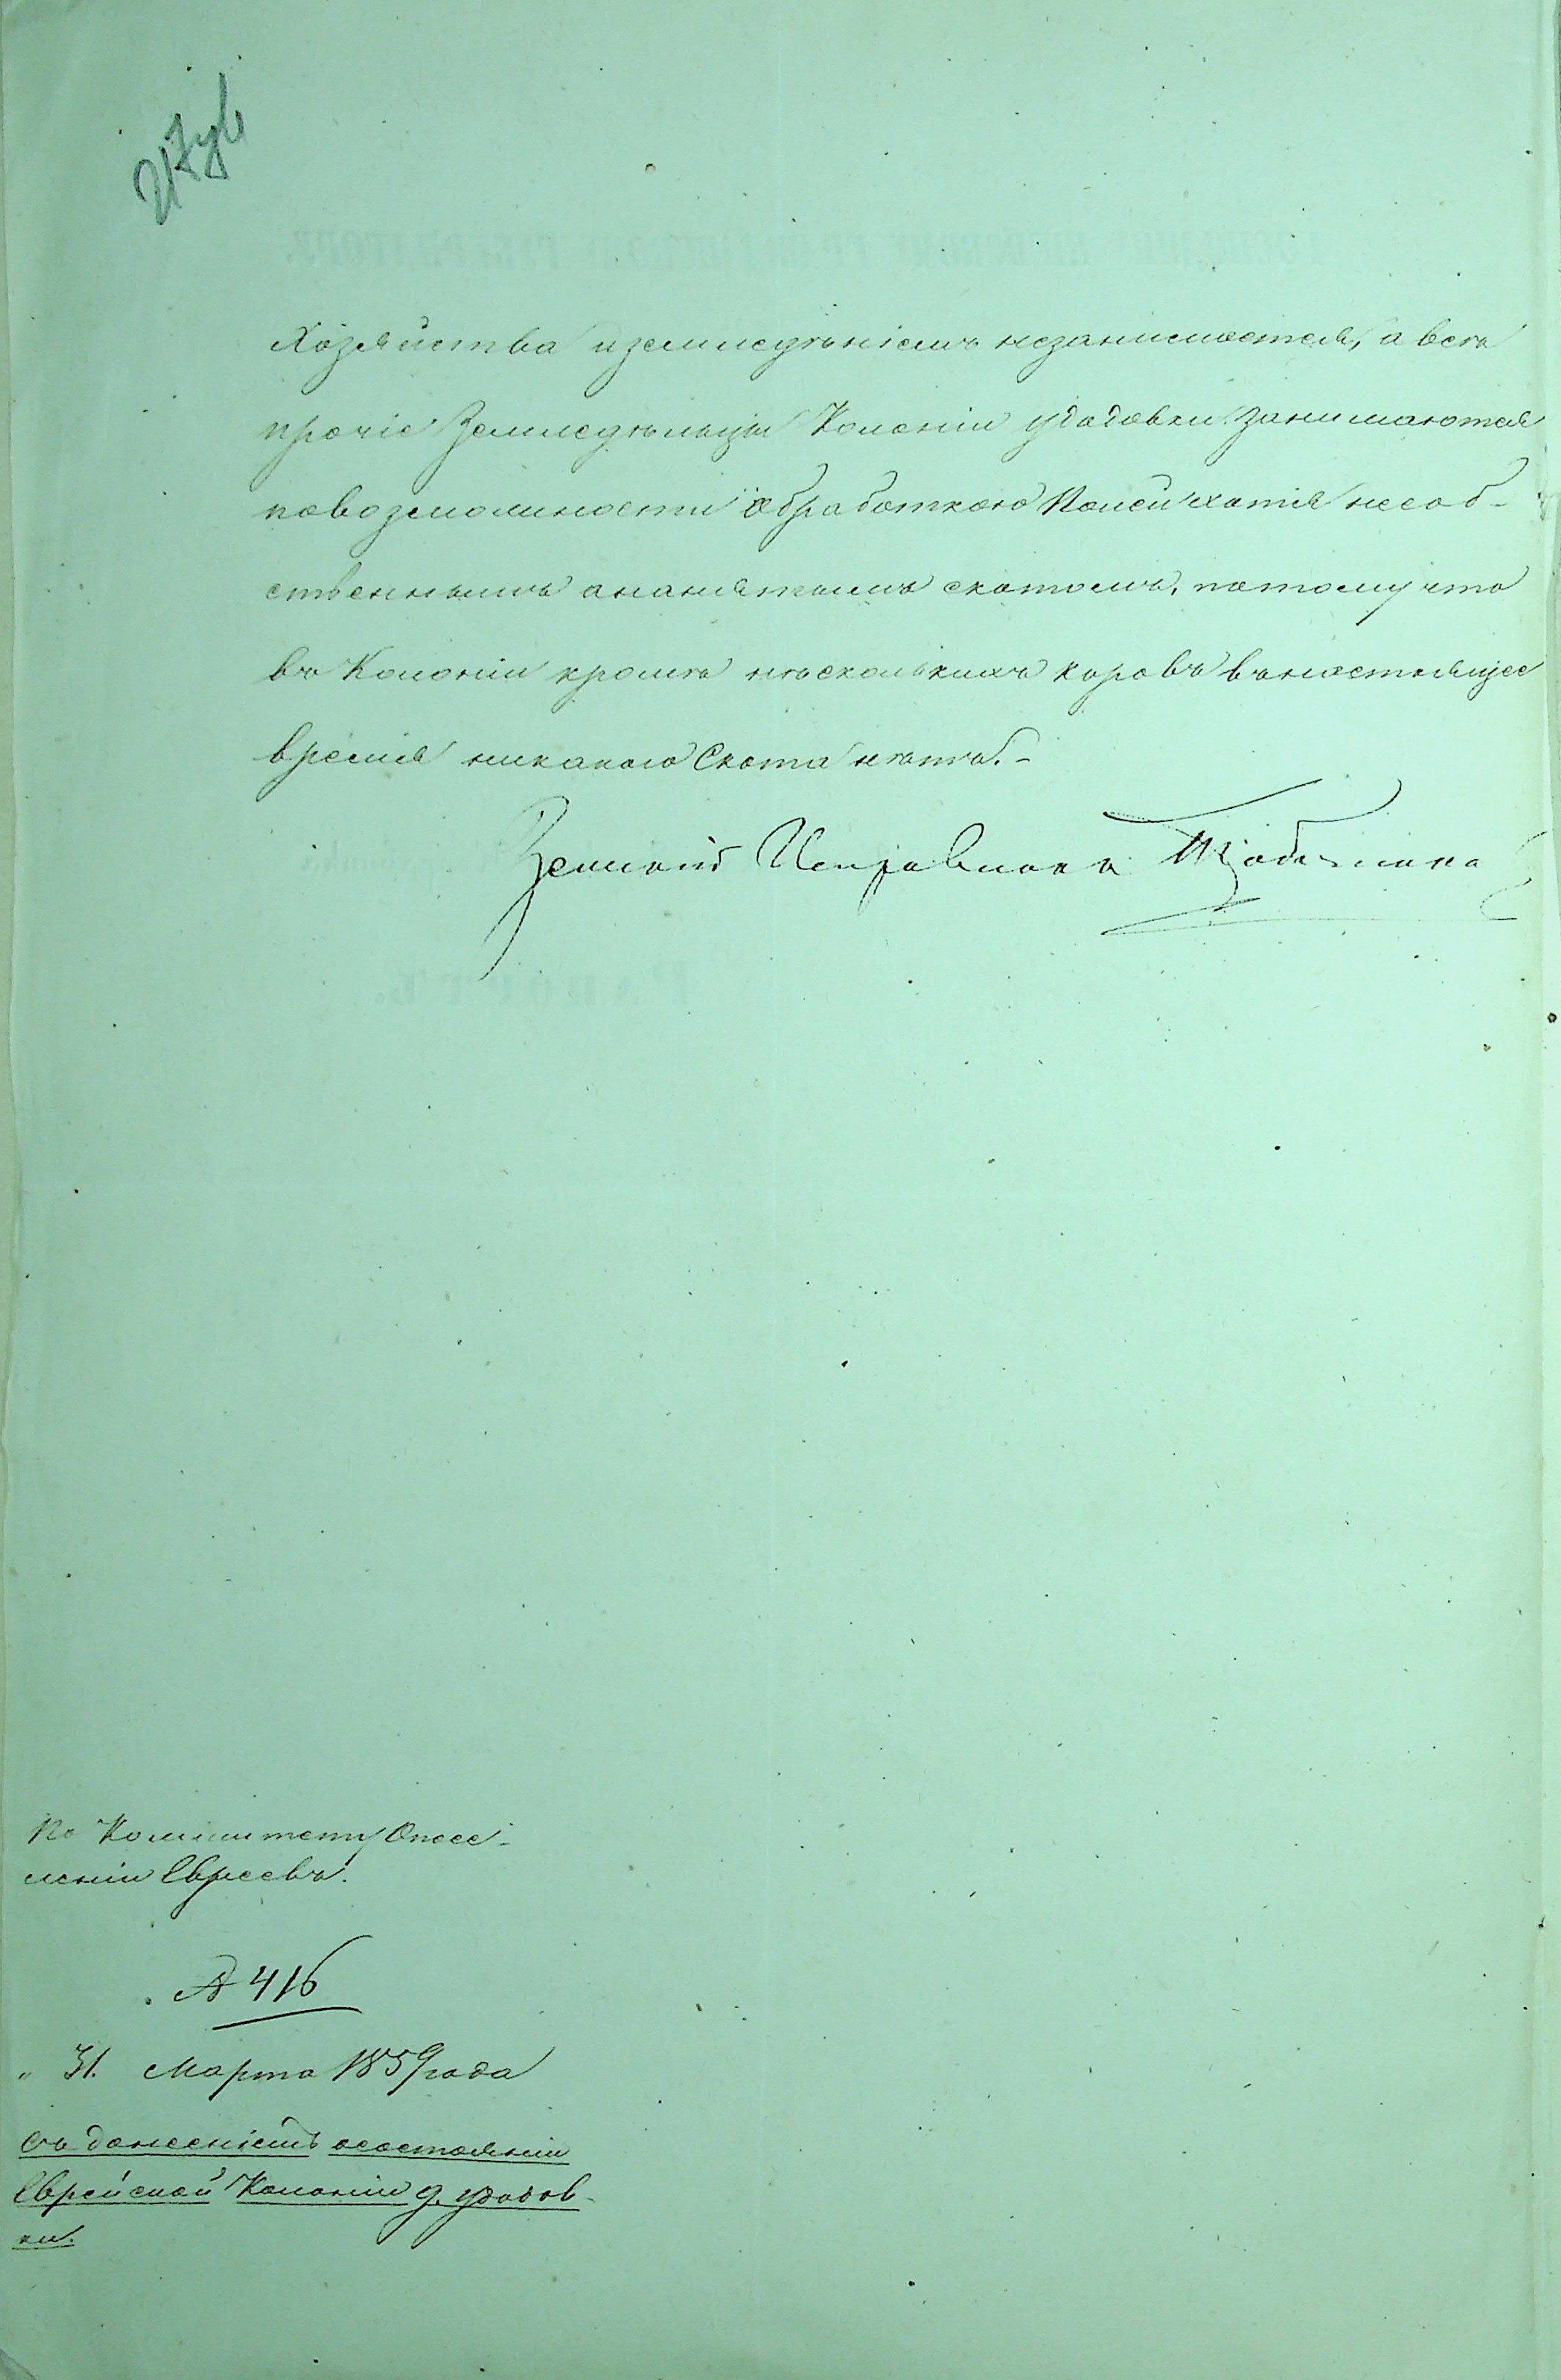 Хозяйства и земледѣніемъ незанимается, а всѣ
прочіе Земледѣльцы Колоніи Удодовки занимаются
повозможности обработкою Полей хотя несоб-
ственнымъ ананятымъ скотомъ, потому что
въ Колоніи кромѣ нѣсколькихъ коровъ внастоящее
время никакого Скота нѣтъ. –
Земскій Исправникъ
По Комитету Опосе-
леніи Евреевъ.
№ 416
„ 31. Марта 1859 года
Съ донесеніемъ осостояніи
Еврейской Колоніи д. Удодов-
ки.